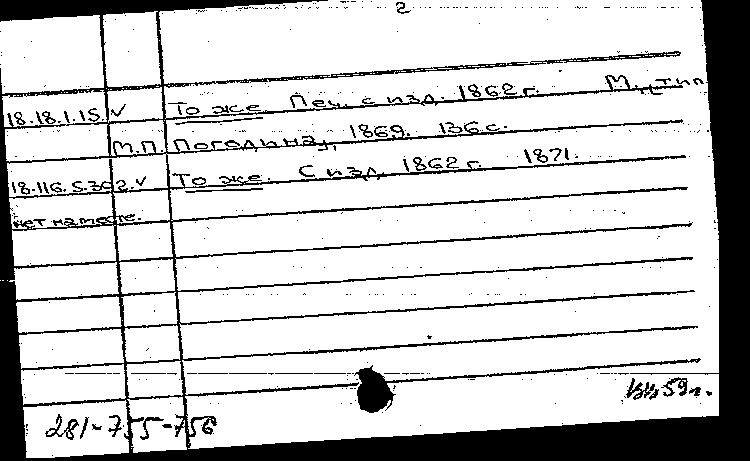 2
18.18.1.15 ✓ То же. Печ. с изд. 1862 г. М., „тип
М.П. Погодина", 1869. 136 с.
18.116.5.302 ✓ То же. С изд. 1862 г. 1871.
нет на месте.
59 г.
281-755-756